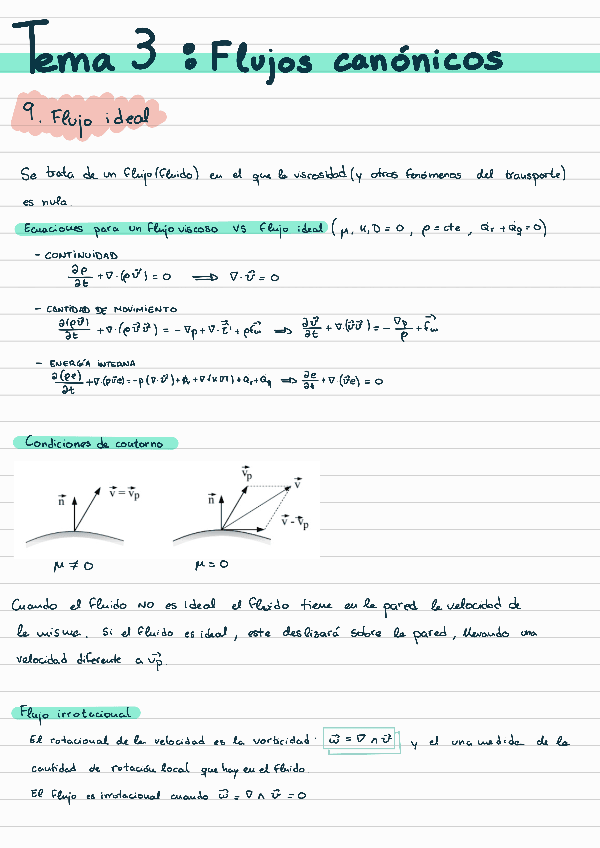 Tema 3 : Flujos canónicos
9. Flujo ideal
Se trata de un flujo (fluido) en el que la viscosidad (y otros fenómenos del transporte)
es nula.
Ecuaciones para un flujo viscoso vs flujo ideal (μ, K, D = 0, ρ = cte, Qr + Qq = 0)
- CONTINUIDAD
∂ρ/∂t + ∇·(ρv⃗) = 0 ⟹ ∇·v⃗ = 0
- CANTIDAD DE MOVIMIENTO
∂(ρv⃗)/∂t + ∇·(ρv⃗v⃗) = -∇p + ∇·τ⃗' + ρf⃗m ⟹ ∂v⃗/∂t + ∇·(v⃗v⃗) = -∇p/ρ + f⃗m
- ENERGÍA INTERNA
∂(ρe)/∂t + ∇·(ρv⃗e) = -p(∇·v⃗) + ϕv + ∇·(K∇T) + Qr + Qq ⟹ ∂e/∂t + ∇·(v⃗e) = 0
Condiciones de contorno
n⃗ v⃗ = v⃗p
n⃗ v⃗p v⃗ v⃗ - v⃗p
μ ≠ 0 μ = 0
Cuando el fluido NO es ideal el fluido tiene en la pared la velocidad de
la misma. Si el fluido es ideal, este deslizará sobre la pared, llevando una
velocidad diferente a v⃗p.
Flujo irrotacional
El rotacional de la velocidad es la vorticidad: ω⃗ = ∇ ∧ v⃗ y el una medida de la
cantidad de rotación local que hay en el fluido.
El flujo es irrotacional cuando ω⃗ = ∇ ∧ v⃗ = 0